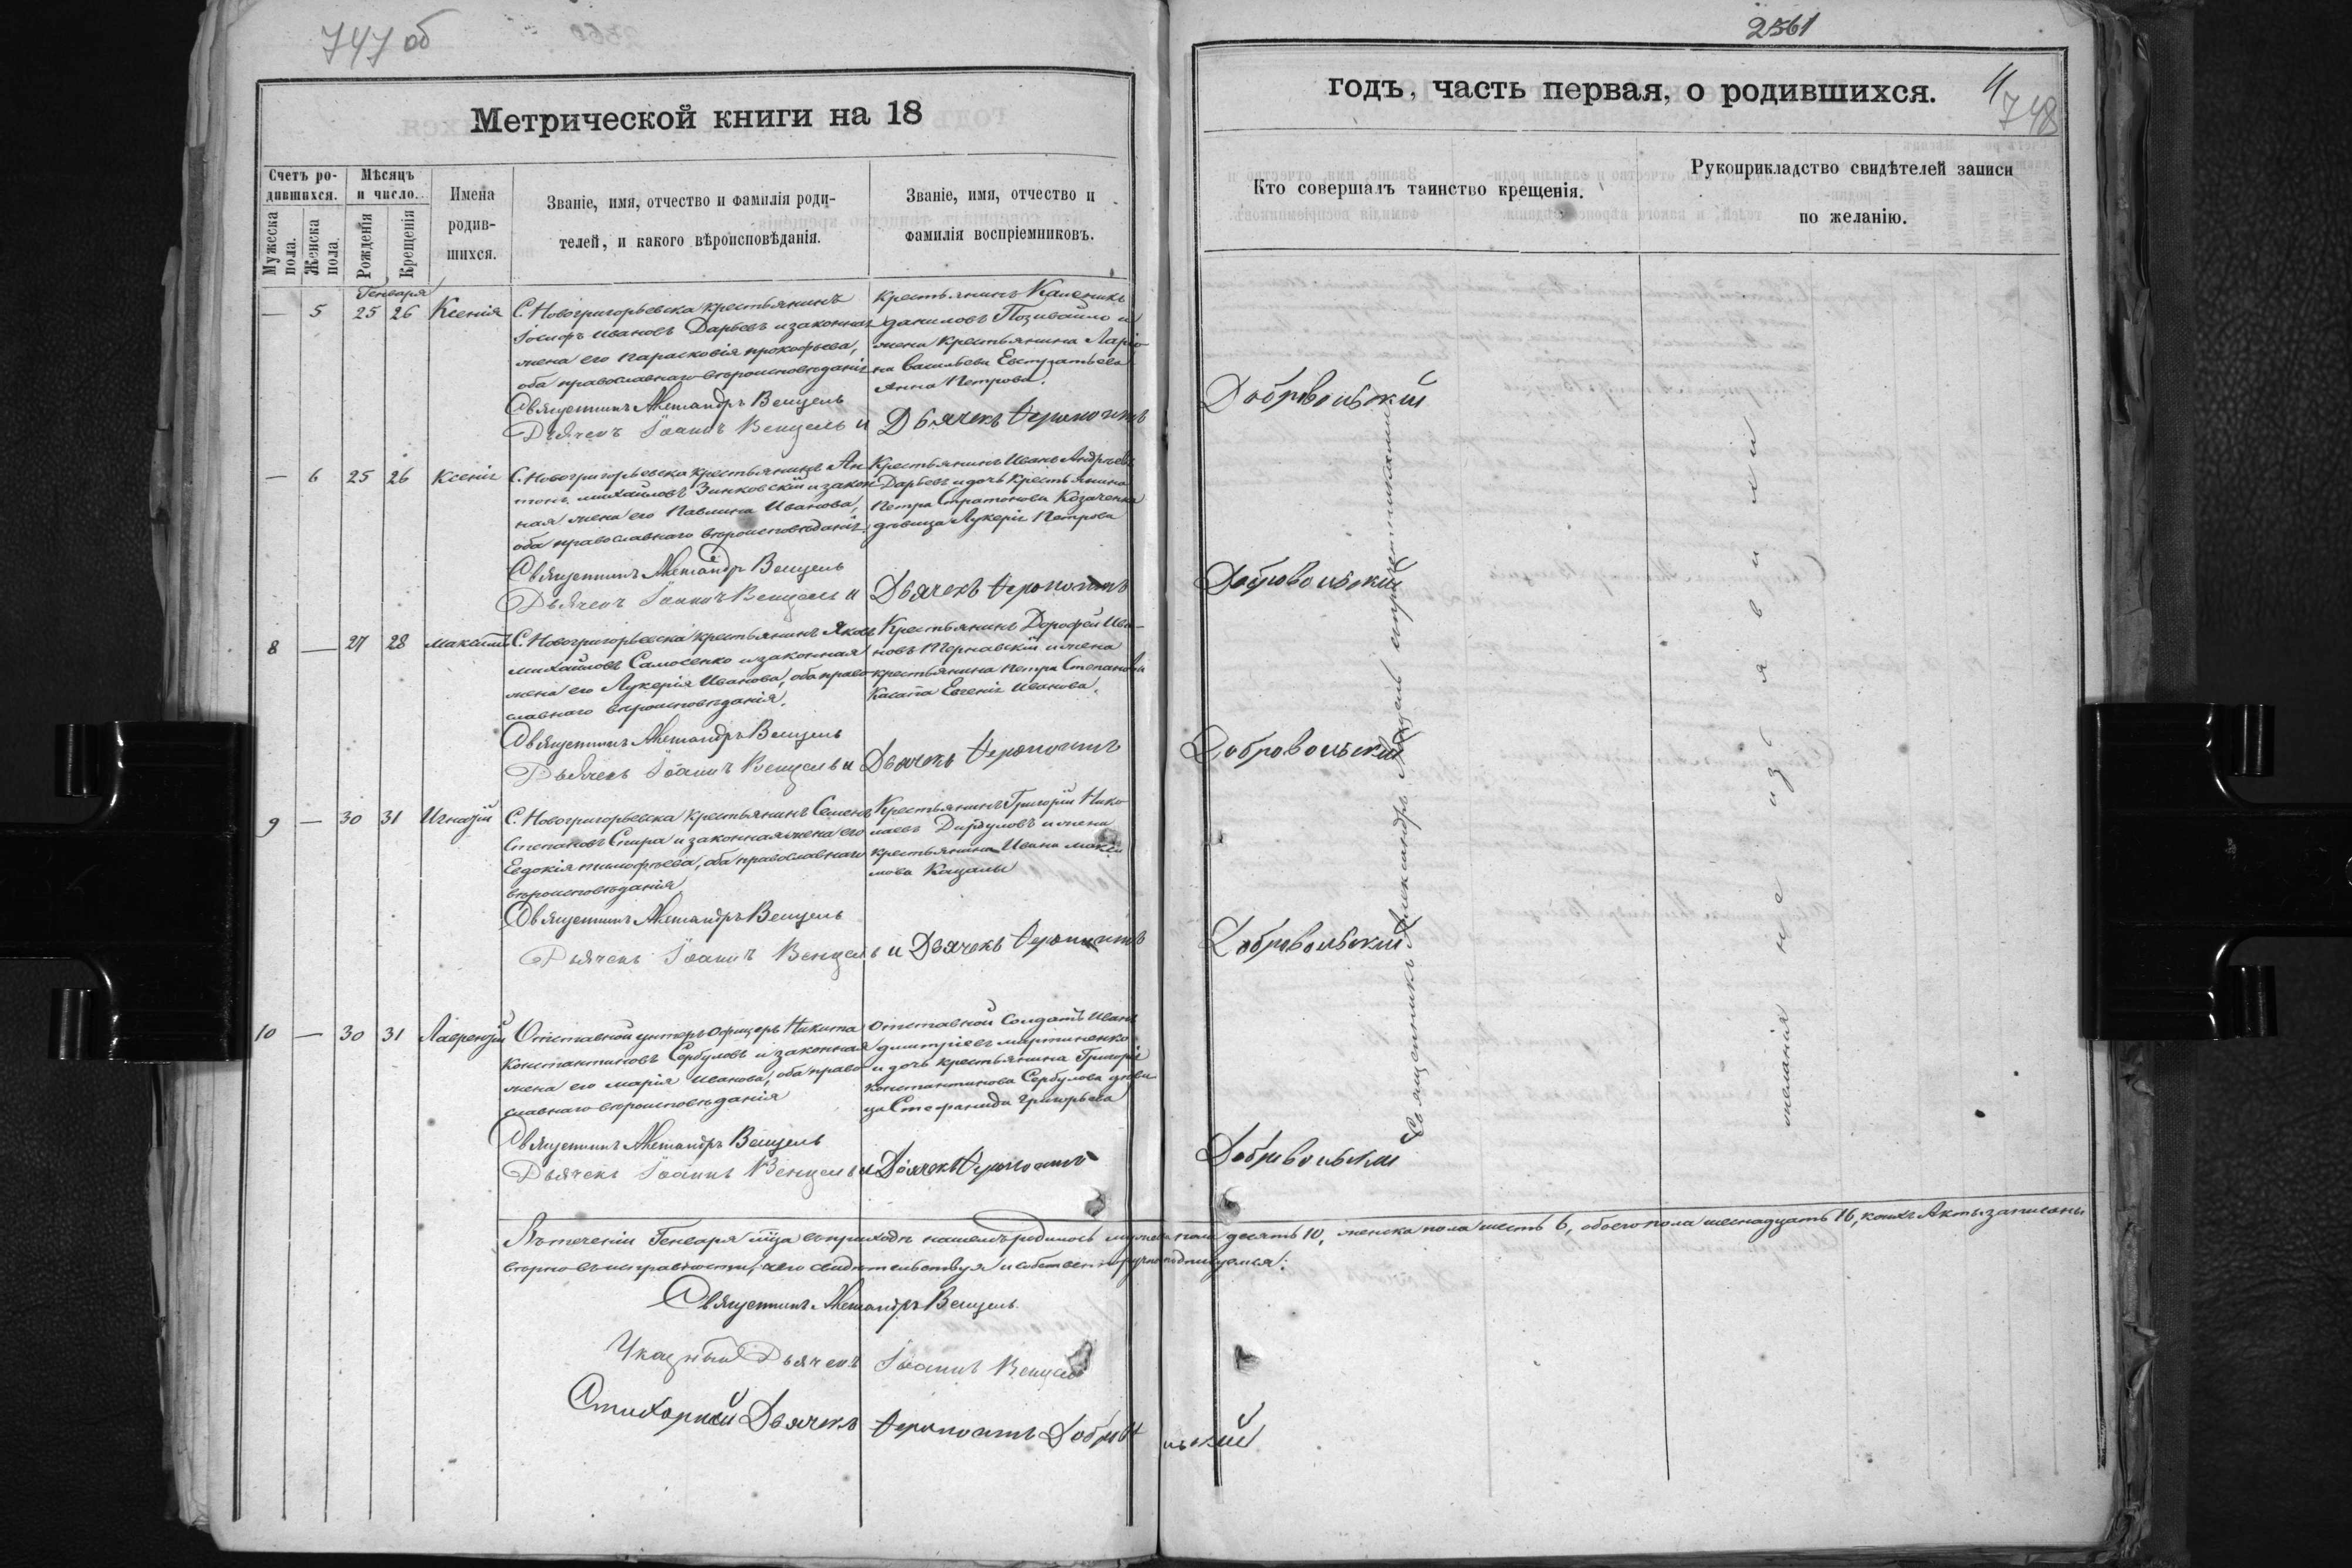 747 об
Метрической книги на 18
Счетъ ро-
дившихся.
Мужеска
пола.
Женска
пола.
Мѣсяцъ
и число.
Рожденія
Крещенія
Имена
родив-
шихся.
Званіе, имя, отчество и фамилія роди-
телей, и какого вѣроисповѣданія.
Званіе, имя, отчество и
фамилія воспріемниковъ.
Генваря
— 5 25 26 Ксенія
С. Новогригорьевска крестьянинъ
Іосифъ Ивановъ Дарьевъ и законная
жена его Парасковія Прокофьева,
оба православнаго вѣроисповѣданія
крестьянинъ
Даниловъ Позивайло и
жена крестьянина Ларіо-
на Васильева Евстратьева
Анна Петрова.
Священникъ Александръ Венцель
Дьячекъ Іоаннъ Венцель и Дьячекъ Ферапонтъ
— 6 25 26 Ксенія
С. Новогригорьевска крестьянинъ Ан-
тонъ Михайловъ Зинковскій и закон-
ная жена его Павлина Иванова,
оба православнаго вѣроисповѣданія
Крестьянинъ Иванъ Андреевъ
Дарьевъ и дочь крестьянина
Петра Стратонова Козаченка
дѣвица Лукерія Петрова
Священникъ Александръ Венцель
Дьячекъ Іоаннъ Венцель и Дьячекъ Ферапонтъ
8 — 27 28 Максимъ
С. Новогригорьевска крестьянинъ Яковъ
Михайловъ Самосенко и законная
жена его Лукерія Иванова, оба право-
славнаго вѣроисповѣданія.
Крестьянинъ Дорофей Ива-
новъ Тернавскій и жена
крестьянина Петра Степанова
Евгенія Иванова.
Священникъ Александръ Венцель
Дьячекъ Іоаннъ Венцель и Дьячекъ Ферапонтъ
9 — 30 31 Игнатій
С. Новогригорьевска крестьянинъ Семенъ
Степановъ Спира и законная жена его
Евдокія Тимофѣева, оба православнаго
вѣроисповѣданія
Крестьянинъ Григорій Нико-
лаевъ и жена
крестьянина Ивана Макси-
мова
Священникъ Александръ Венцель
Дьячекъ Іоаннъ Венцель и Дьячекъ Ферапонтъ
10 — 30 31 Лаврентій
Отставной унтеръ офицеръ Никита
Константиновъ Сербуловъ и законная
жена его Марія Иванова, оба право-
славнаго вѣроисповѣданія
Отставной Солдатъ Иванъ
Димитріевъ Мартиненко
и дочь крестьянина Григорія
Константинова Сербулова дѣви-
ца Стефанида Григорьева
Священникъ Александръ Венцель
Дьячекъ Іоаннъ Венцель и Дьячекъ Ферапонтъ
Въ теченіи Генваря м-ца въ приходѣ нашемъ родилось мужеска пола десять 10, женска пола шесть 6, обоего пола шестнадцать 16, коихъ Акты записаны
вѣрно въ исправности, чего свидѣтельствуя и собственноручно подписуемся:
Священникъ Александръ Венцель
Указный Дьячекъ Іоаннъ Венцель
Стихарный Дьячекъ Ферапонтъ Добровольскій
2561
годъ, часть первая, о родившихся.
4
748
Кто совершалъ таинство крещенія.
Рукоприкладство свидѣтелей записи
по желанію.
Добровольскій
Добровольскій
Добровольскій
Добровольскій
Добровольскій
Священникъ Александръ Венцель съ причетниками
желанія не изъявили